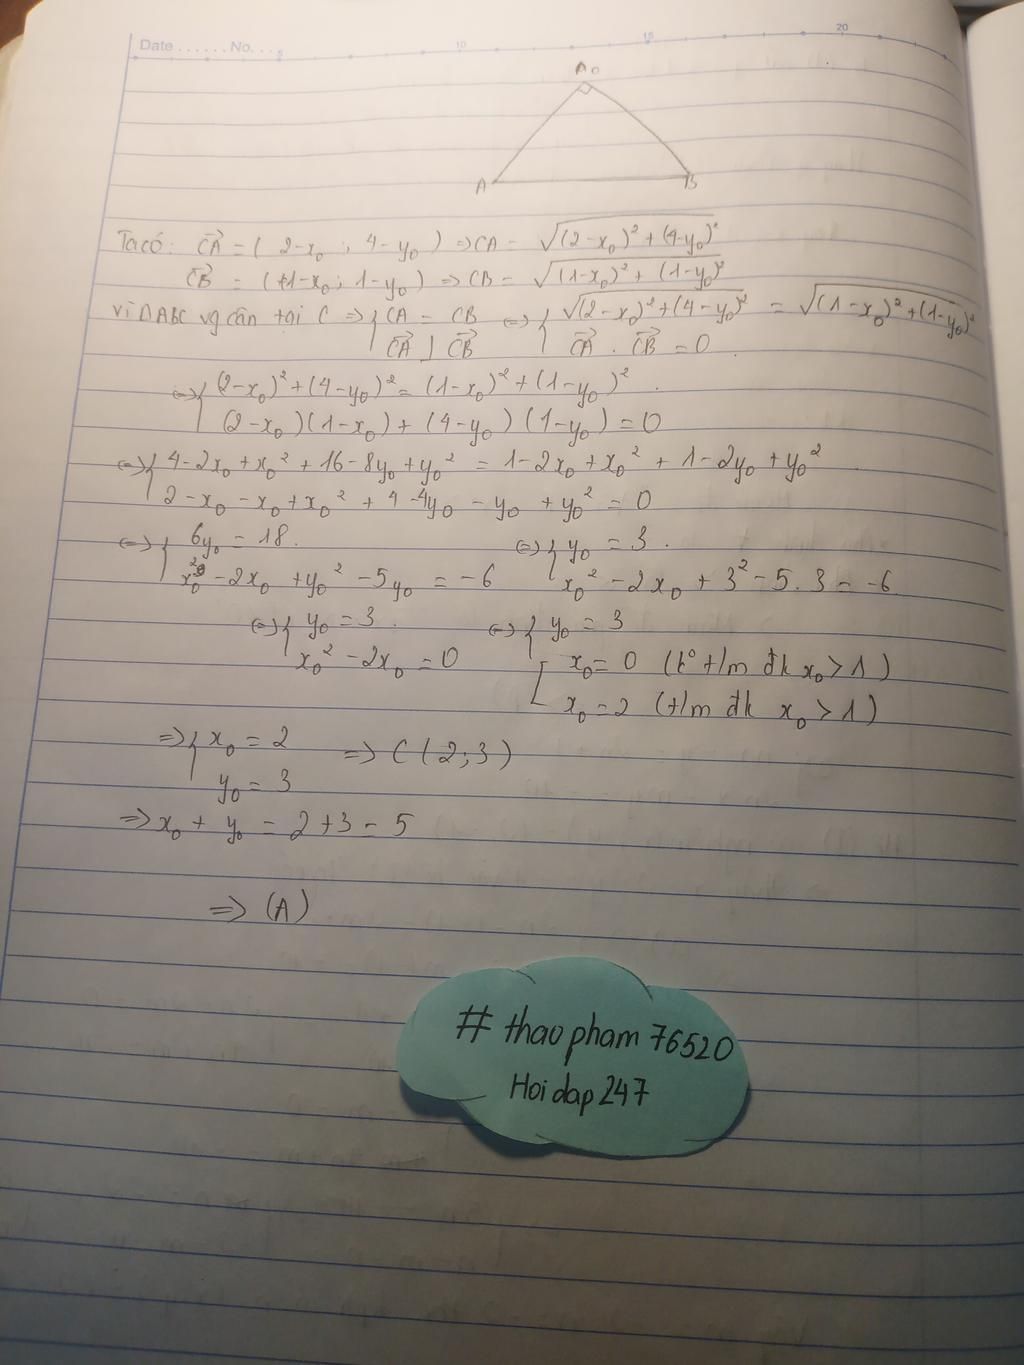 Date ...... No. ... 5 10 15 20
A0
A B
Ta có: CA→ = (2-x₀ ; 4-y₀) => CA = √((2-x₀)² + (4-y₀)²)
CB→ = (1-x₀; 1-y₀) => CB = √((1-x₀)² + (1-y₀)²)
Vì ΔABC vg cân tại C => { CA = CB <=> { √((2-x₀)²+(4-y₀)²) = √((1-x₀)²+(1-y₀)²)
CA→ ⊥ CB→ CA→ . CB→ = 0
<=> { (2-x₀)²+(4-y₀)² = (1-x₀)²+(1-y₀)²
(2-x₀)(1-x₀) + (4-y₀)(1-y₀) = 0
<=> { 4-2x₀+x₀² + 16-8y₀+y₀² = 1-2x₀+x₀² + 1-2y₀+y₀²
2-x₀-x₀+x₀² + 4-4y₀-y₀ + y₀² = 0
<=> { 6y₀ = 18. <=> { y₀ = 3.
x₀² - 2x₀ + y₀² - 5y₀ = -6 x₀² - 2x₀ + 3² - 5.3 = -6
<=> { y₀ = 3. <=> { y₀ = 3
x₀² - 2x₀ = 0 [ x₀ = 0 (k° t/m đk x₀ > 1)
x₀ = 2 (t/m đk x₀ > 1)
=> { x₀ = 2 => C(2;3)
y₀ = 3
=> x₀ + y₀ = 2+3 = 5
=> (A)
# thao pham 76520
Hoi dap 247